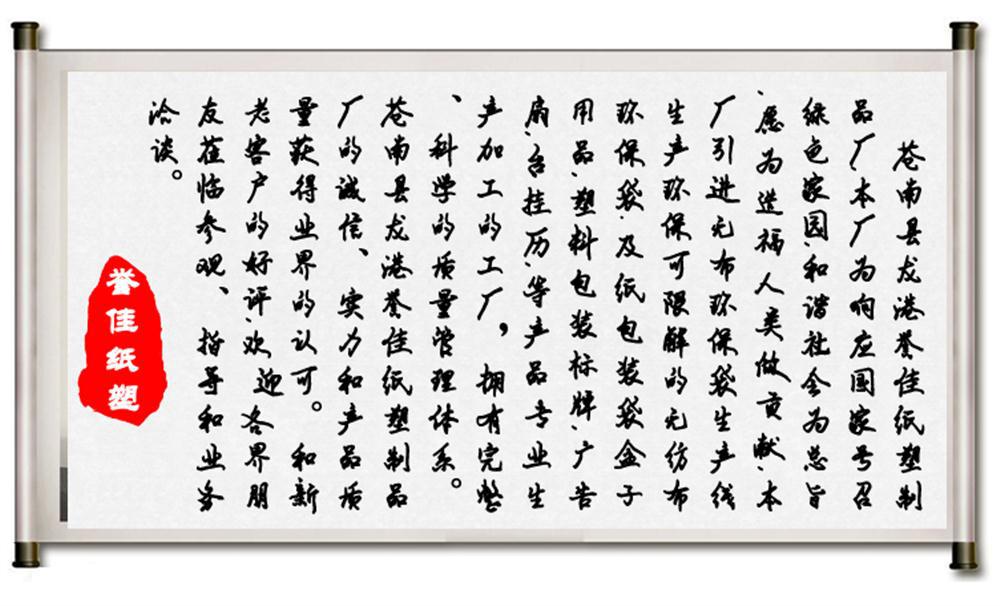 苍南县龙港誉佳纸塑制
品厂本厂为响应国家号召
绿色家园、和谐社会为总旨
、愿为造福人类做贡献、本
厂引进无布环保袋生产线
生产环保可限解的无纺布
环保袋、及纸包装袋盒子
用品、塑料包装标牌、广告
扇、台挂历、等产品专业生
产加工的工厂，拥有完整
、科学的质量管理体系。
苍南县龙港誉佳纸塑制品
厂的诚信、实力和产品质
量获得业界的认可。和新
老客户的好评、欢迎各界朋
友莅临参观、指导和业务
洽谈。
誉佳纸塑